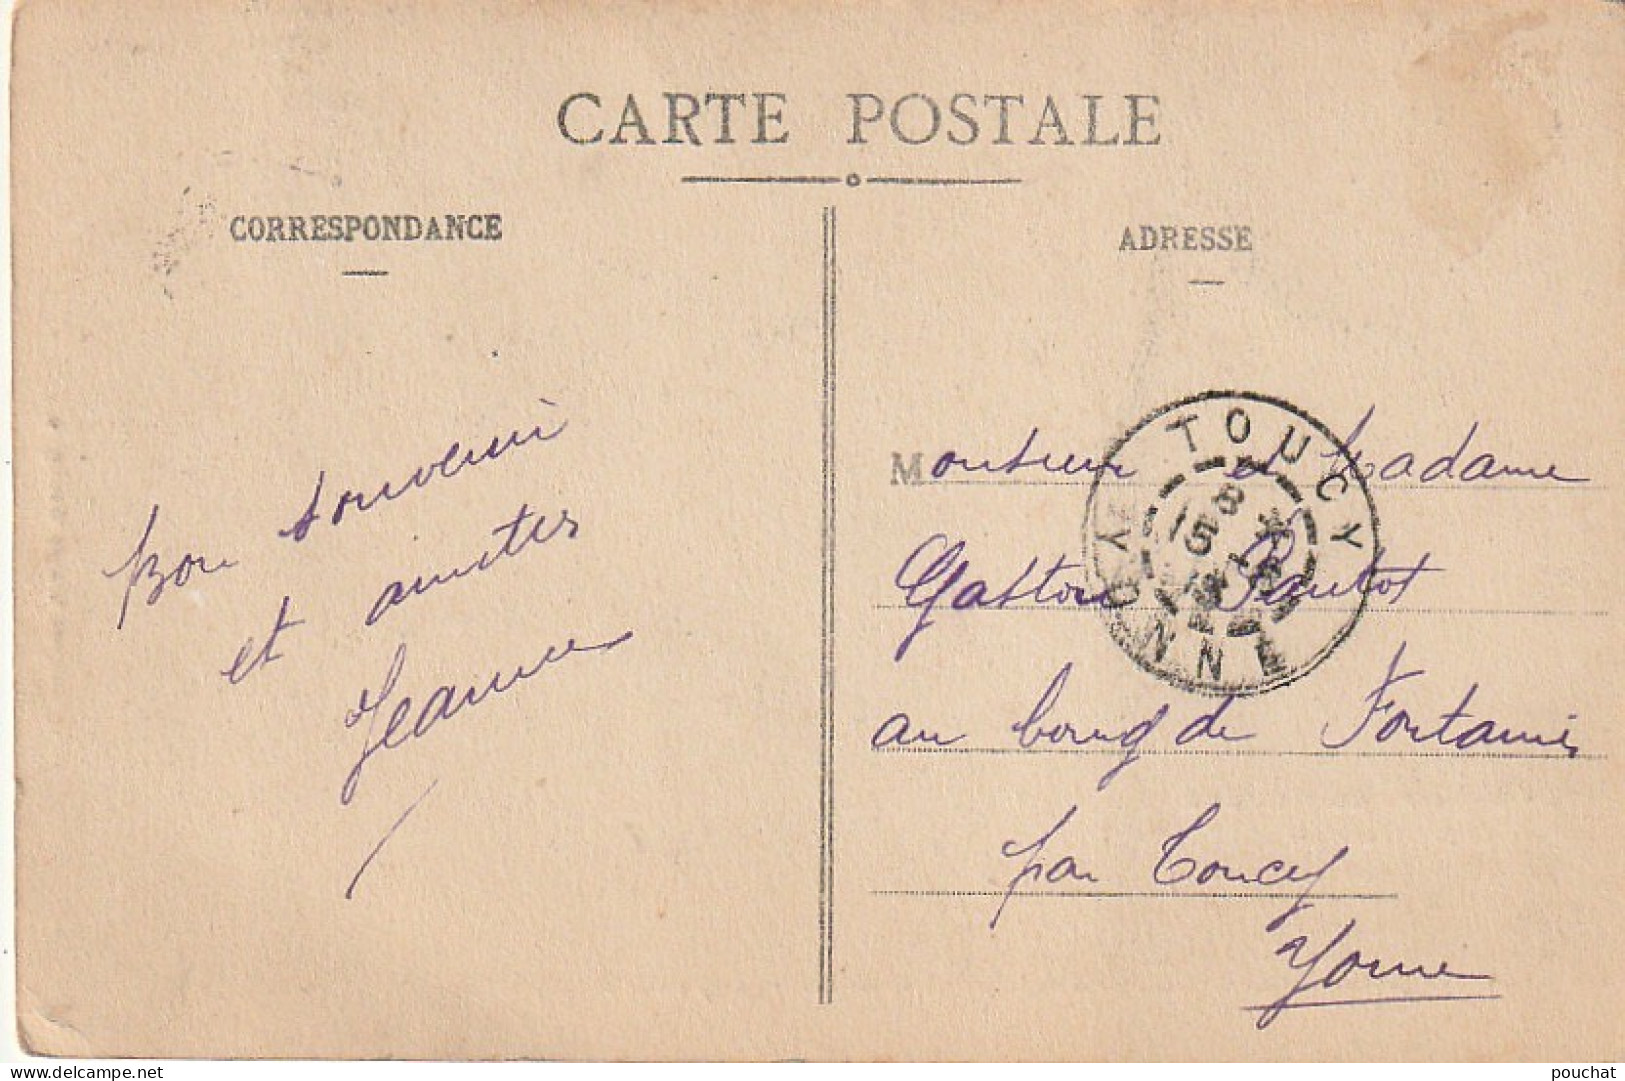 CARTE POSTALE
CORRESPONDANCE
Bon souvenir
et amitiés
Jeanne
ADRESSE
Monsieur et Madame
Gaston Pautot
au bourg de Fontaines
par Toucy
Yonne
TOUCY
YONNE
delcampe.net
pouchat